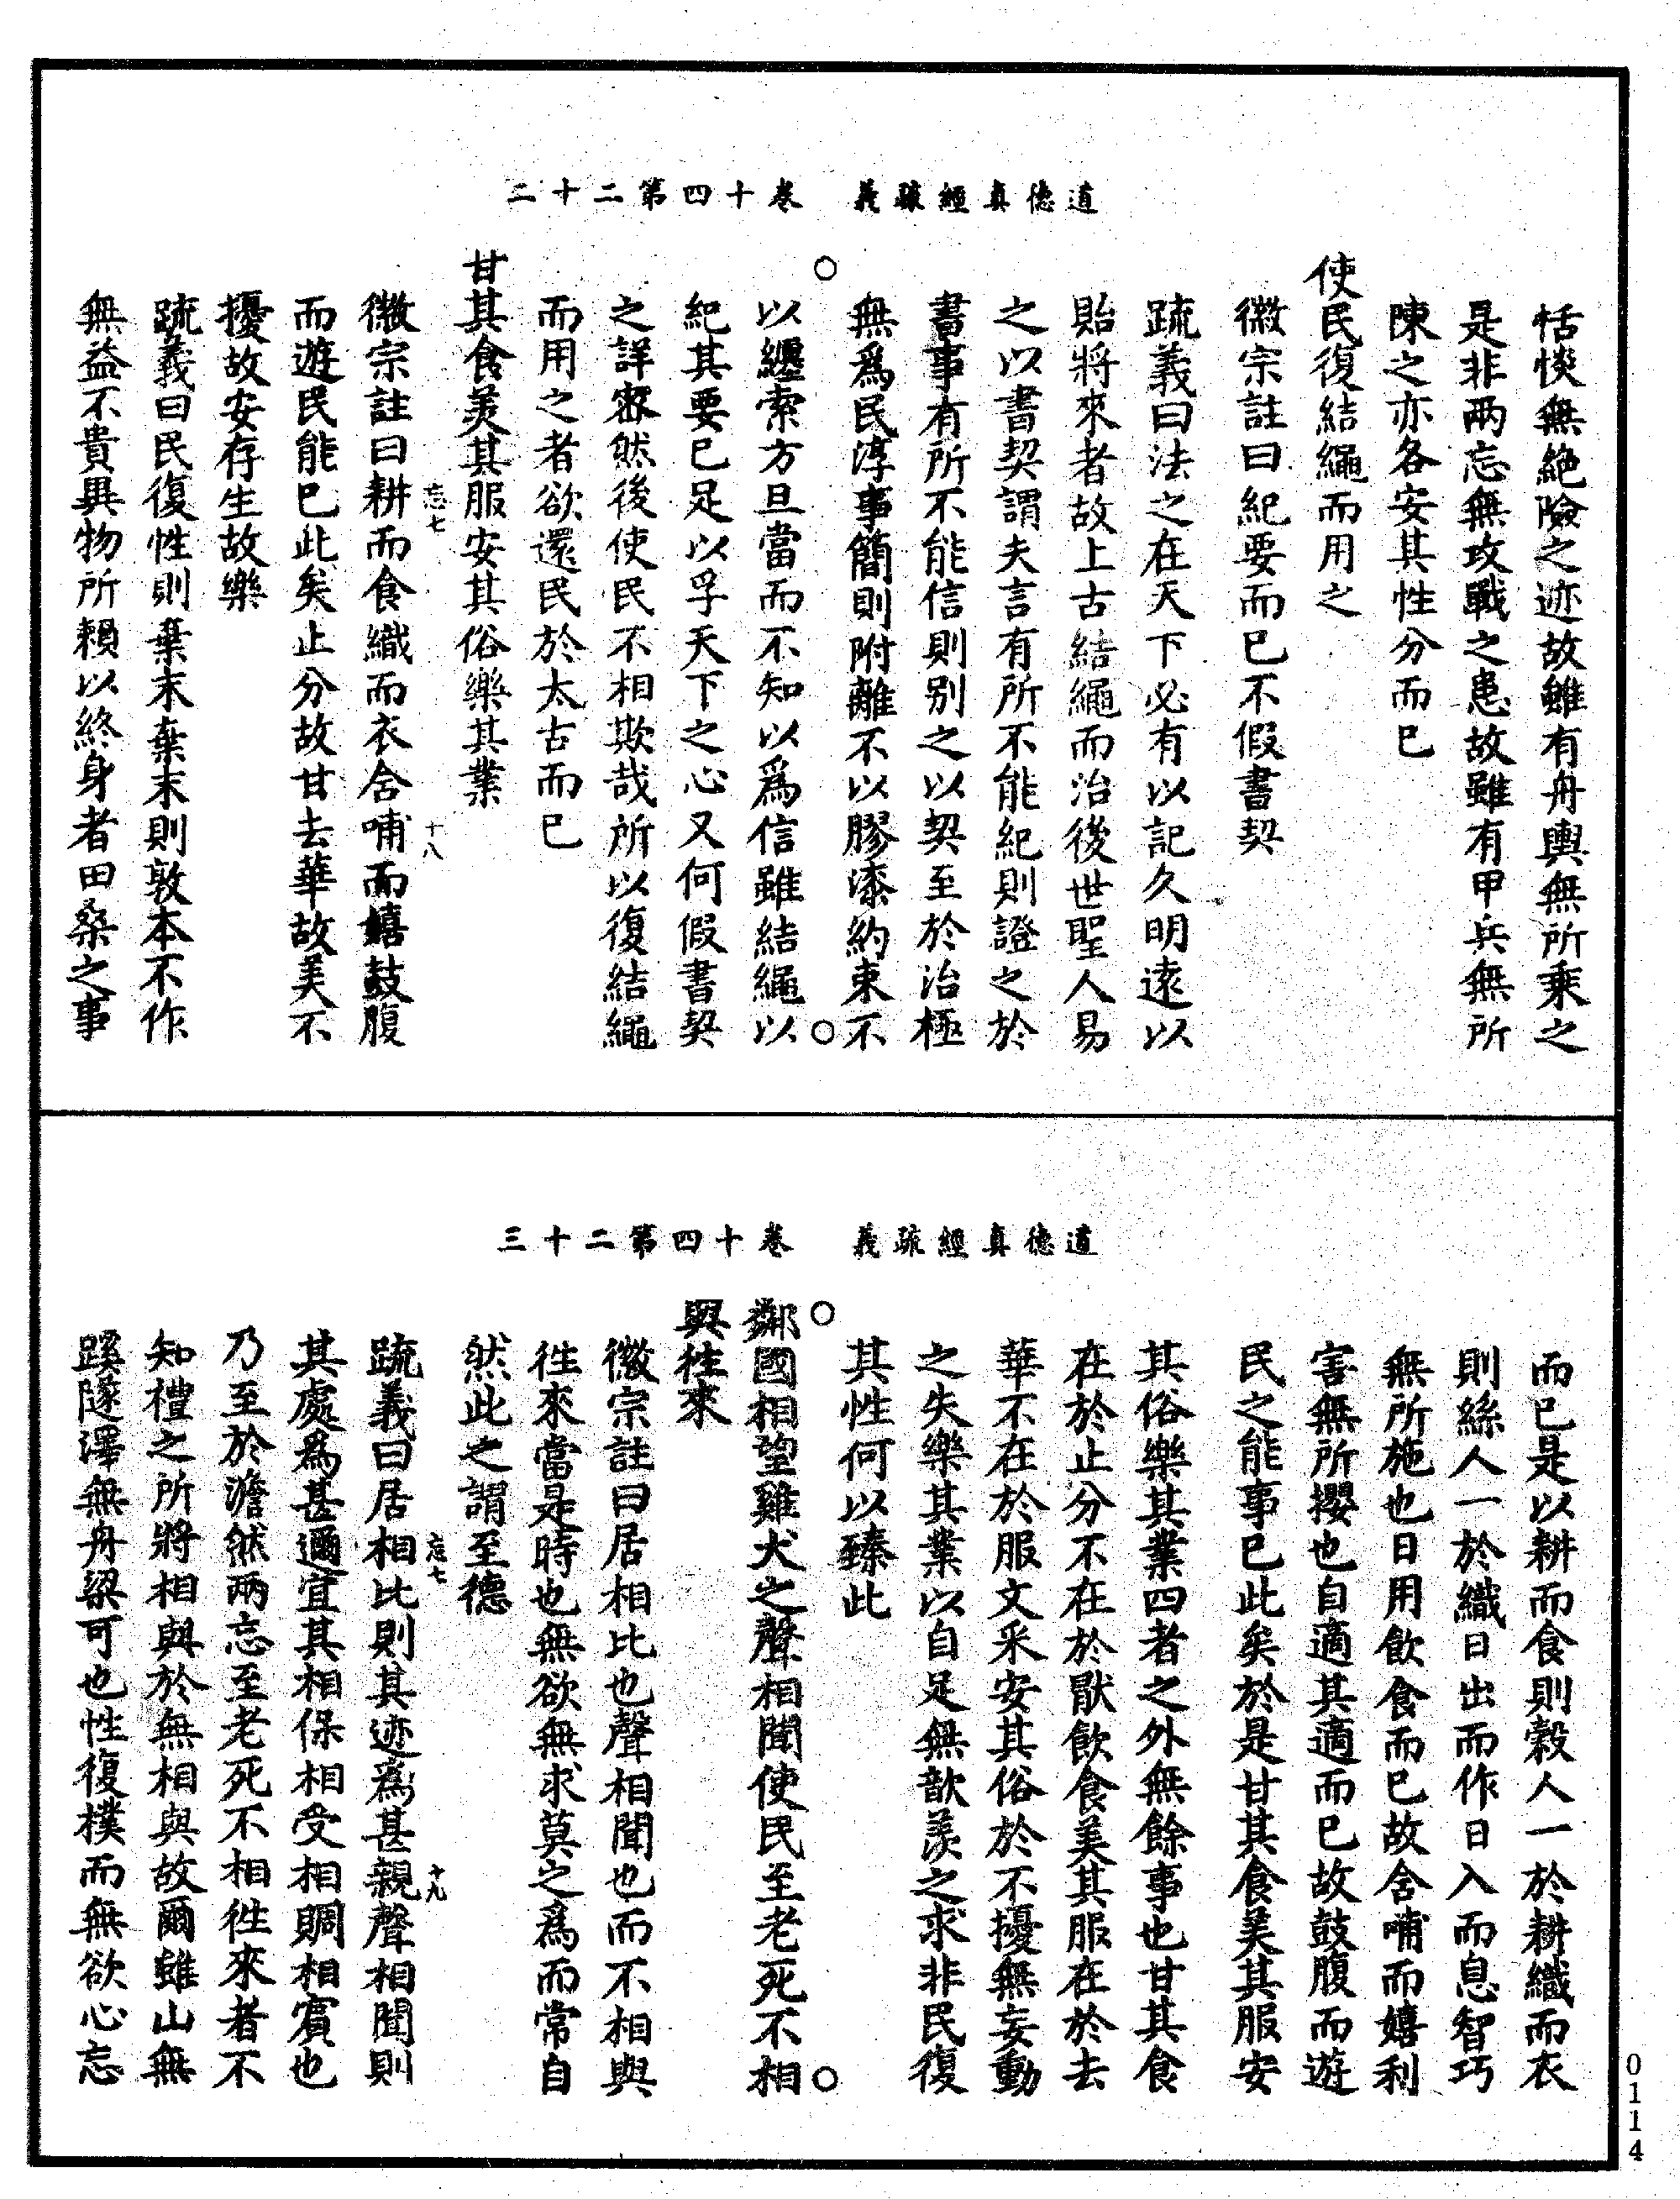 道德真經疏義　卷十四第二十二
恬惔無絶險之迹故雖有舟輿無所乘之
是非兩忘無攻戰之患故雖有甲兵無所
陳之亦各安其性分而已
使民復結繩而用之
徽宗註曰紀要而已不假書契
疏義曰法之在天下必有以記久明遠以
貽將來者故上古結繩而治後世聖人易
之以書契謂夫言有所不能紀則證之於
書事有所不能信則别之以契至於治極
無爲民淳事簡則附離不以膠漆約束不
以纆索方且當而不知以爲信雖結繩以
紀其要已足以孚天下之心又何假書契
之詳密然後使民不相欺哉所以復結繩
而用之者欲還民於太古而已
甘其食羙其服安其俗樂其業
忘七　十八
徽宗註曰耕而食織而衣舍哺而嬉鼓腹
而遊民能已此矣止分故甘去華故美不
擾故安存生故樂
疏義曰民復性則棄末棄末則敦本不作
無益不貴異物所賴以終身者田桑之事
道德真經疏義　卷十四第二十三
而已是以耕而食則穀人一於耕織而衣
則絲人一於織日出而作日入而息智巧
無所施也日用飲食而已故舍哺而嬉利
害無所攖也自適其適而已故鼓腹而遊
民之能事已此矣於是甘其食美其服安
其俗樂其業四者之外無餘事也甘其食
在於止分不在於猒飲食美其服在於去
華不在於服文采安其俗於不擾無妄動
之失樂其業以自足無歆羨之求非民復
其性何以臻此
鄰國相望雞犬之聲相聞使民至老死不相
與徃來
徽宗註曰居相比也聲相聞也而不相與
徃來當是時也無欲無求莫之爲而常自
然此之謂至德
忘七　十九
疏義曰居相比則其迹爲甚親聲相聞則
其處爲甚邇宜其相保相受相賙相賓也
乃至於澹然兩忘至老死不相徃來者不
知禮之所將相與於無相與故爾雖山無
蹊隧澤無舟梁可也性復樸而無欲心忘
0114